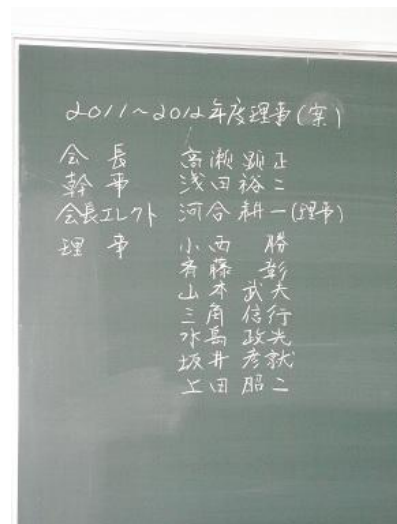 2011～2012年度理事(案)
会長 高瀬顕正
幹事 浅田裕二
会長エレクト 河合耕一(理事)
理事 小西 勝
斉藤 彰
山本武夫
三角信行
水島政光
坂井彦就
上田昭二